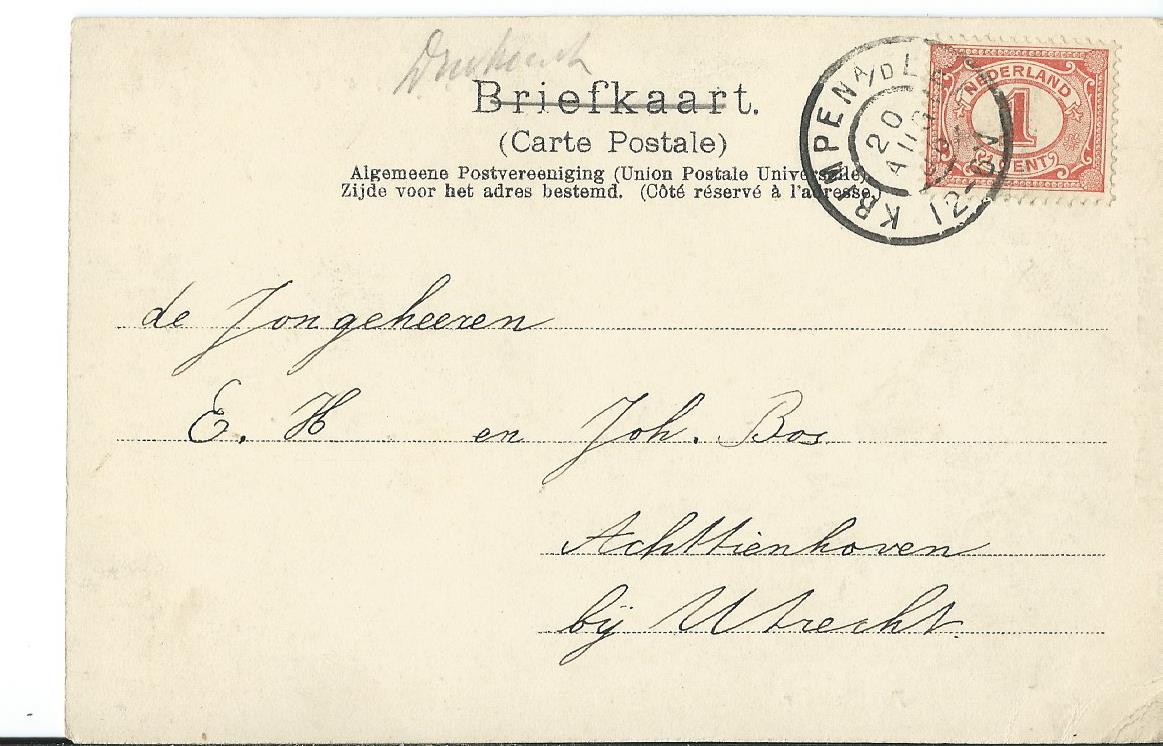 Briefkaart.
(Carte Postale)
Algemeene Postvereeniging (Union Postale Universelle)
Zijde voor het adres bestemd. (Côté réservé à l'adresse.)
KRIMPEN A/D LEK
20 AUG
12-
NEDERLAND
1
CENT
de Jongeheeren
E. H en Joh. Bos
Achttienhoven
bij Utrecht.